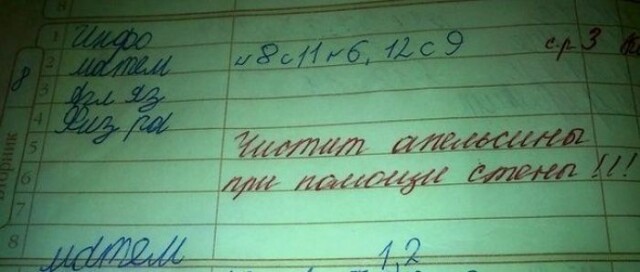 8
1 Инфо
2 матем №8 с 11 №6, 12 с 9 с.р 3
3 Агл яз
4 Физ ра
5 Чистит апельсины
6 при помощи стены!!!
7
8
матем 1,2
8
Вторник